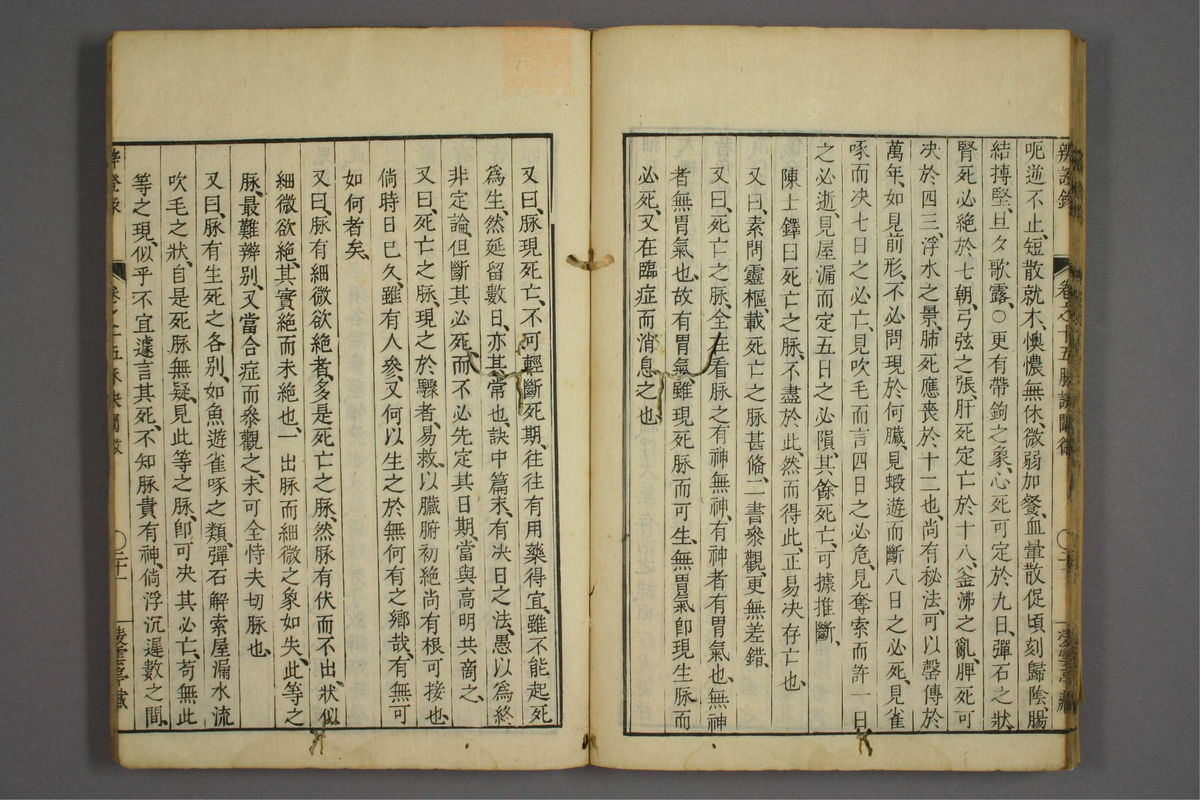 辨證錄 卷之十五脉訣闡微
呃逆不止、短散就木、懊憹無休、微弱加餐、血暈散促、頃刻歸陰、腸
結搏堅、旦夕歌露、○更有帶鉤之象、心死可定於九日、彈石之狀、
腎死必絕於七朝、弓弦之張、肝死定亡於十八、釜沸之亂、脾死可
决於四三、浮水之景、肺死應喪於十二也、尚有秘法、可以罄傳於
萬年、如見前形、不必問現於何臟、見蝦遊而斷八日之必死、見雀
啄而决七日之必亡、見吹毛而言四日之必危、見奪索而許一日
之必逝、見屋漏而定五日之必隕、其餘死亡、可據推斷、
陳士鐸曰死亡之脉、不盡於此、然而得此、正易决存亡也、
又曰、素問靈樞、載死亡之脉甚備、二書叅觀、更無差錯、
又曰、死亡之脉、全在看脉之有神無神、有神者有胃氣也、無神
者無胃氣也、故有胃氣、雖現死脉而可生、無胃氣卽現生脉而
必死、又在臨症而消息之也
又曰、脉現死亡、不可輕斷死期、往往有用藥得宜、雖不能起死
爲生、然延留數日、亦其常也、訣中篇末、有决日之法、愚以爲終
非定論、但斷其必死、而不必先定其日期、當與高明共商之、
又曰、死亡之脉、現之於驟者、易救、以臟腑初絕、尚有根可接也、
倘時日已久、雖有人參、又何以生之於無何有之鄉哉、有無可
如何者矣、
又曰、脉有細微欲絕者、多是死亡之脉、然脉有伏而不出、狀似
細微欲絕、其實絕而未絕也、一出脉而細微之象如失、此等之
脉、最難辨别、又當合症而叅觀之、未可全恃夫切脉也、
又曰、脉有生死之各别、如魚遊雀啄之類、彈石解索屋漏水流
吹毛之狀、自是死脉無疑、見此等之脉、卽可决其必亡、苟無此
等之現、似乎不宜遽言其死、不知脉貴有神、倘浮沉遲數之間、